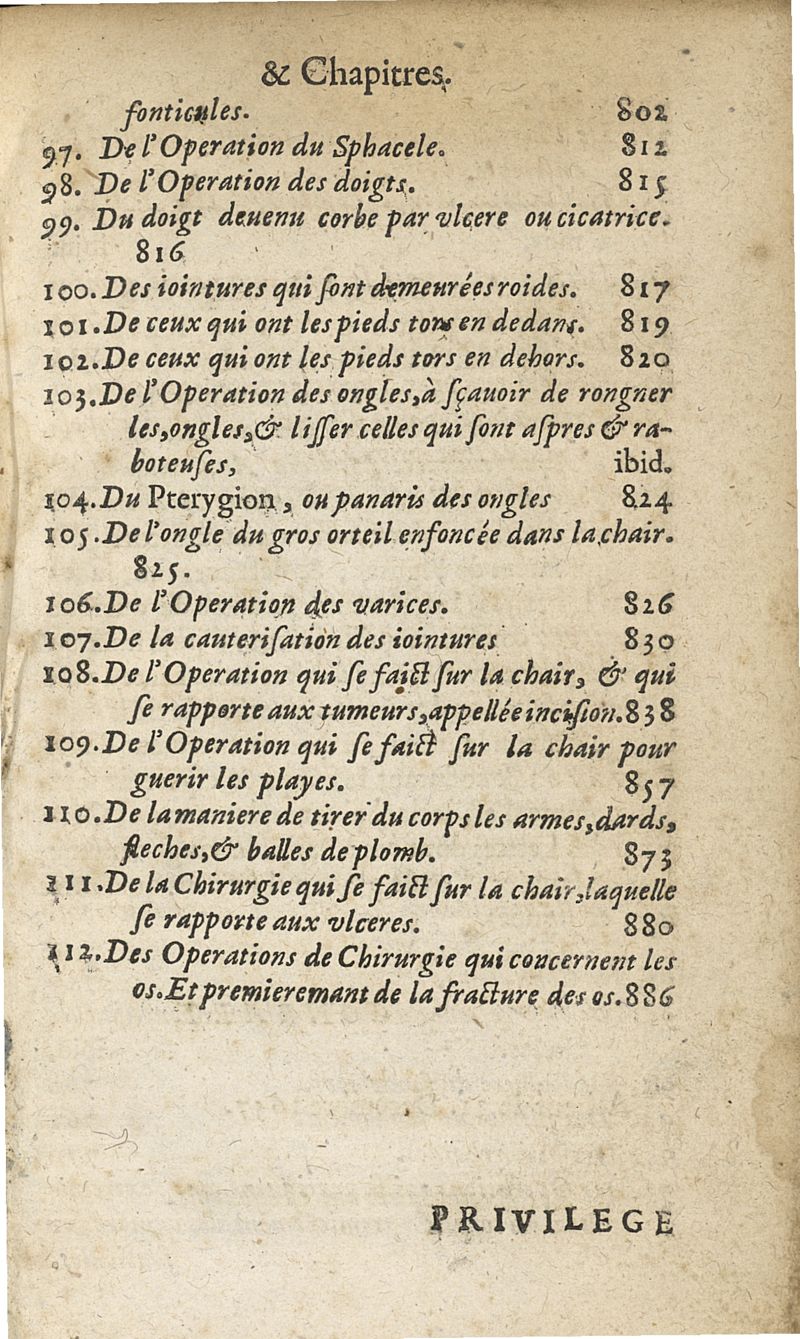 & Chapitres.
fonticules. 802
97. De l'Operation du Sphacele. 812
98. De l'Operation des doigts. 815
99. Du doigt deuenu corbe par vlcere ou cicatrice.
816
100. Des iointures qui ſont demeurées roides. 817
101. De ceux qui ont les pieds tors en dedans. 819
102. De ceux qui ont les pieds tors en dehors. 820
103. De l'Operation des ongles, à ſçauoir de rongner
les, ongles, & liſſer celles qui ſont aſpres & ra-
boteuſes, ibid.
104. Du Pterygion, ou panaris des ongles 824
105. De l'ongle du gros orteil enfoncée dans la chair.
825.
106. De l'Operation des varices. 826
107. De la cauteriſation des iointures 830
108. De l'Operation qui ſe faict ſur la chair, & qui
ſe rapporte aux tumeurs, appellée inciſion. 838
109. De l'Operation qui ſe faict ſur la chair pour
guerir les playes. 857
110. De la maniere de tirer du corps les armes, dards,
fleches, & balles de plomb. 873
111. De la Chirurgie qui ſe faict ſur la chair, laquelle
ſe rapporte aux vlceres. 880
112. Des Operations de Chirurgie qui coucernent les
os. Et premieremant de la fracture des os. 886
PRIVILEGE